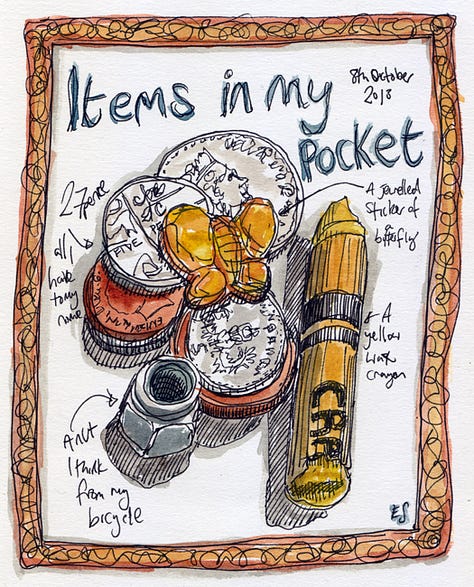 Items in my
Pocket
8th October
2018
A jewelled
sticker of
a
butterfly
27pence
all I
have
to my
name
FIVE
A
yellow
wax
crayon
CRA
A nut
I think
from my
bicycle
ES